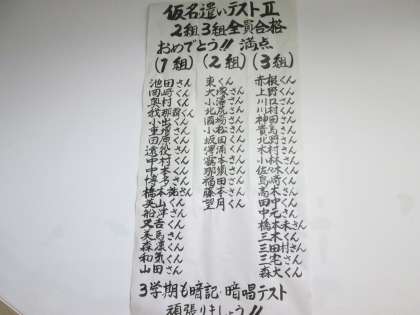 仮名遣いテストⅡ
2組、3組全員合格
おめでとう!! 満点
(1組)
池田さん
岡崎くん
奥村くん
小出くん
重増さん
田原くん
遠役さん
中村くん
橋本
美山さん
船津さん
又吉くん
美馬さん
森廣くん
和気くん
山田さん
(2組)
東くん
大塚さん
小澤さん
北尻さん
酒場さん
小松さん
小田くん
坂浦くん
澤本くん
那須さん
福田くん
藤本さん
望月くん
(3組)
赤根くん
上野くん
川口さん
川村さん
神田くん
北野さん
木村さん
小林くん
佐々木くん
高木さん
田中くん
橋本未さん
三木くん
三田村さん
三宅さん
森大くん
3学期も暗記・暗唱テスト
頑張りましょう!!